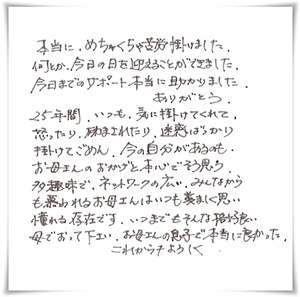 本当に、めちゃくちゃ苦労掛けました。
何とか、今日の日を迎えることができました。
今日までのサポート本当に助かりました。
ありがとう。
25年間、いつも、気に掛けてくれて
怒ったり、励まされたり、迷惑ばっかり
掛けてごめん。今の自分があるのも
お母さんのおかげと本心でそう思う。
多趣味で、ネットワークの広い、みんなから
も慕われるお母さんはいつも羨ましく思い
憧れる存在です。いつまでもそんな格好良い
母でおって下さい。お母さんの息子で本当に良かった。
これからもよろしく